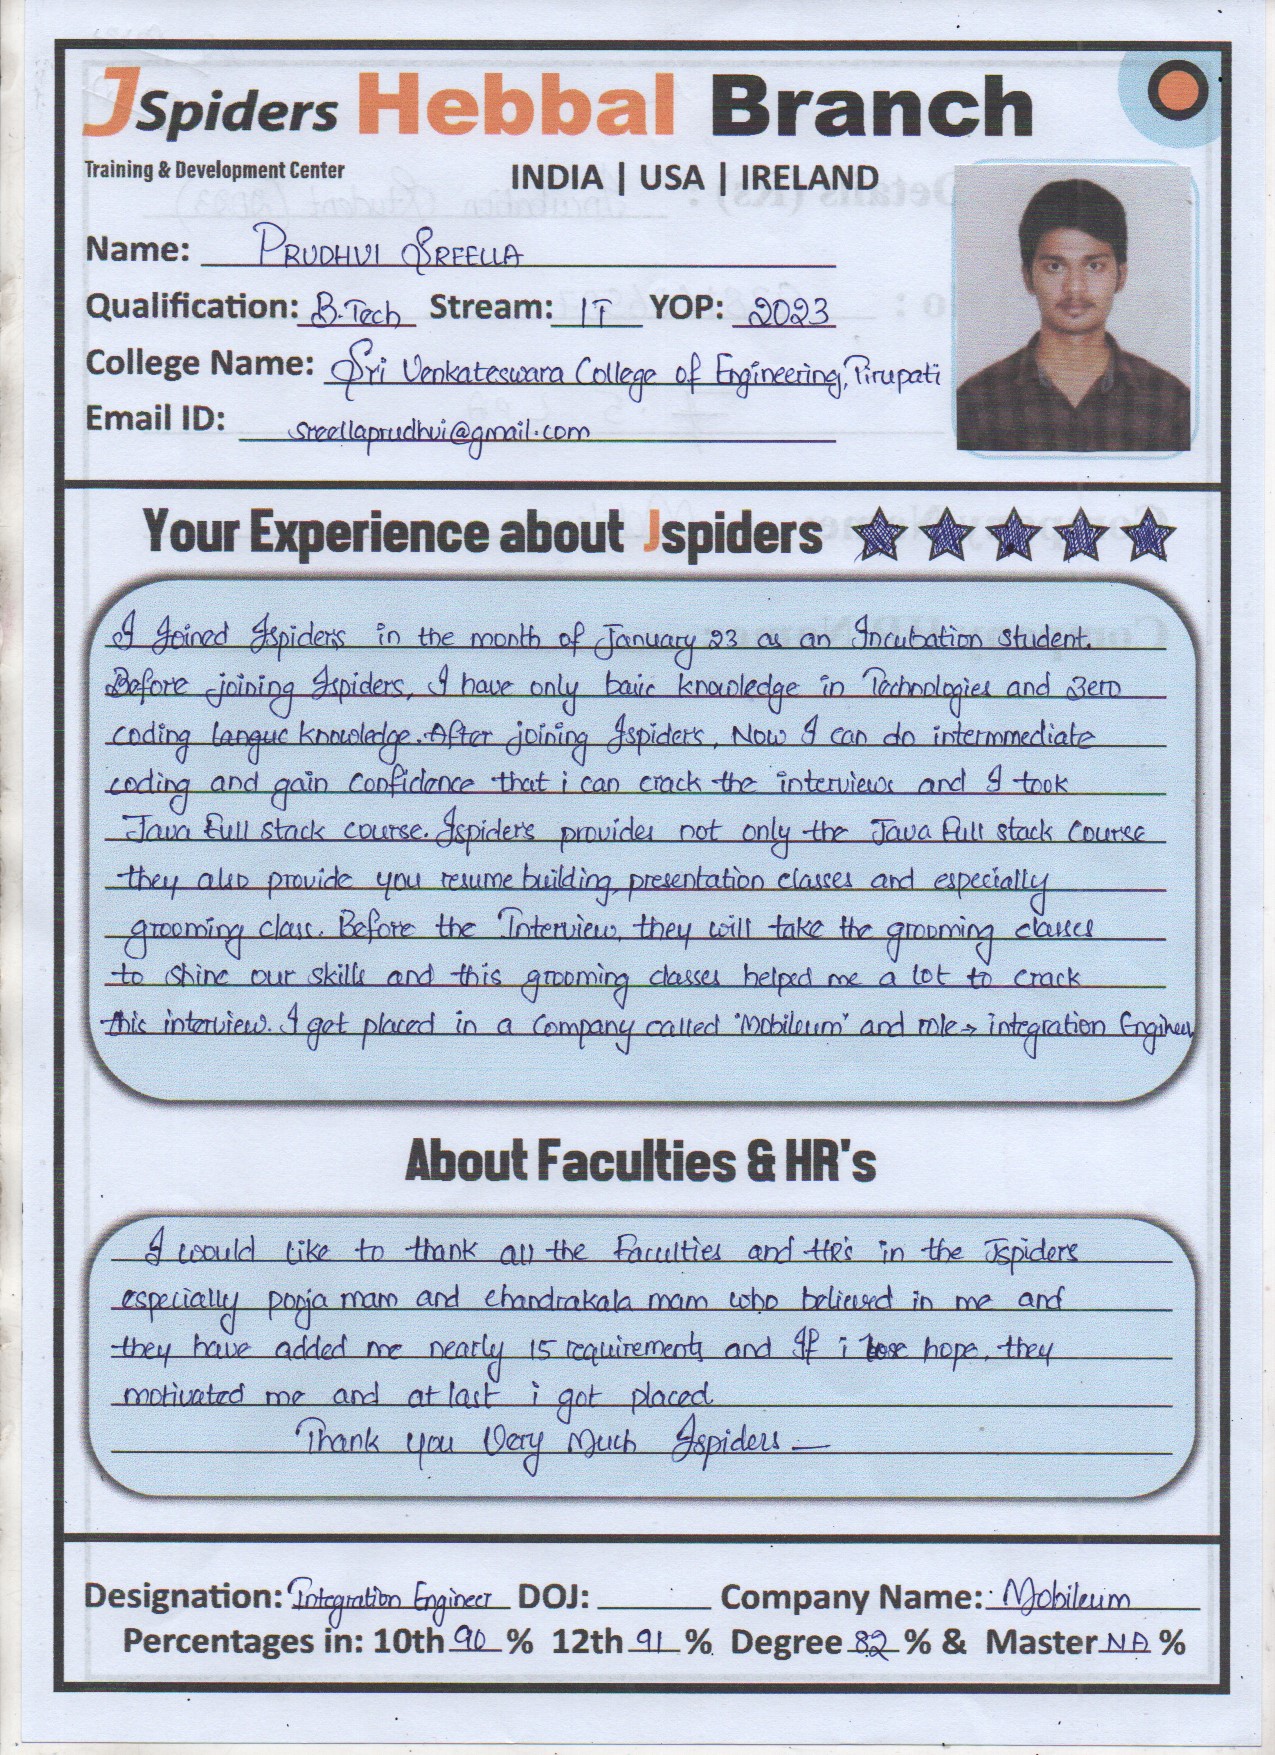 JSpiders Hebbal Branch
Training & Development Center
INDIA | USA | IRELAND
Name: PRUDHVI SREELLA
Qualification: B.Tech Stream: IT YOP: 2023
College Name: Sri Venkateswara College of Engineering, Tirupati
Email ID: sreellaprudhvi@gmail.com
Your Experience about Jspiders
I Joined Jspiders in the month of January 23 as an Incubation student.
Before joining Jspiders, I have only basic knowledge in Technologies and Zero
coding langue knowledge. After joining Jspiders, Now I can do intermmediate
coding and gain confidence that i can crack the interviews and I took
Java Full stack course. Jspiders provides not only the Java Full stack Course
they also provide you resume building, presentation classes and especially
grooming class. Before the Interview, they will take the grooming classes
to shine our skills and this grooming classes helped me a lot to crack
this interview. I got placed in a Company called "Mobileum" and role → integration Engineer
About Faculties & HR's
I would like to thank all the Faculties and HR's in the Jspiders
especially pooja mam and chandrakala mam who believed in me and
they have added me nearly 15 requirements and If i lose hope, they
motivated me and at last i got placed
Thank you Very Much Jspiders —
Designation: Integration Engineer DOJ: Company Name: Mobileum
Percentages in: 10th 90 % 12th 91 % Degree 82 % & Master NA %